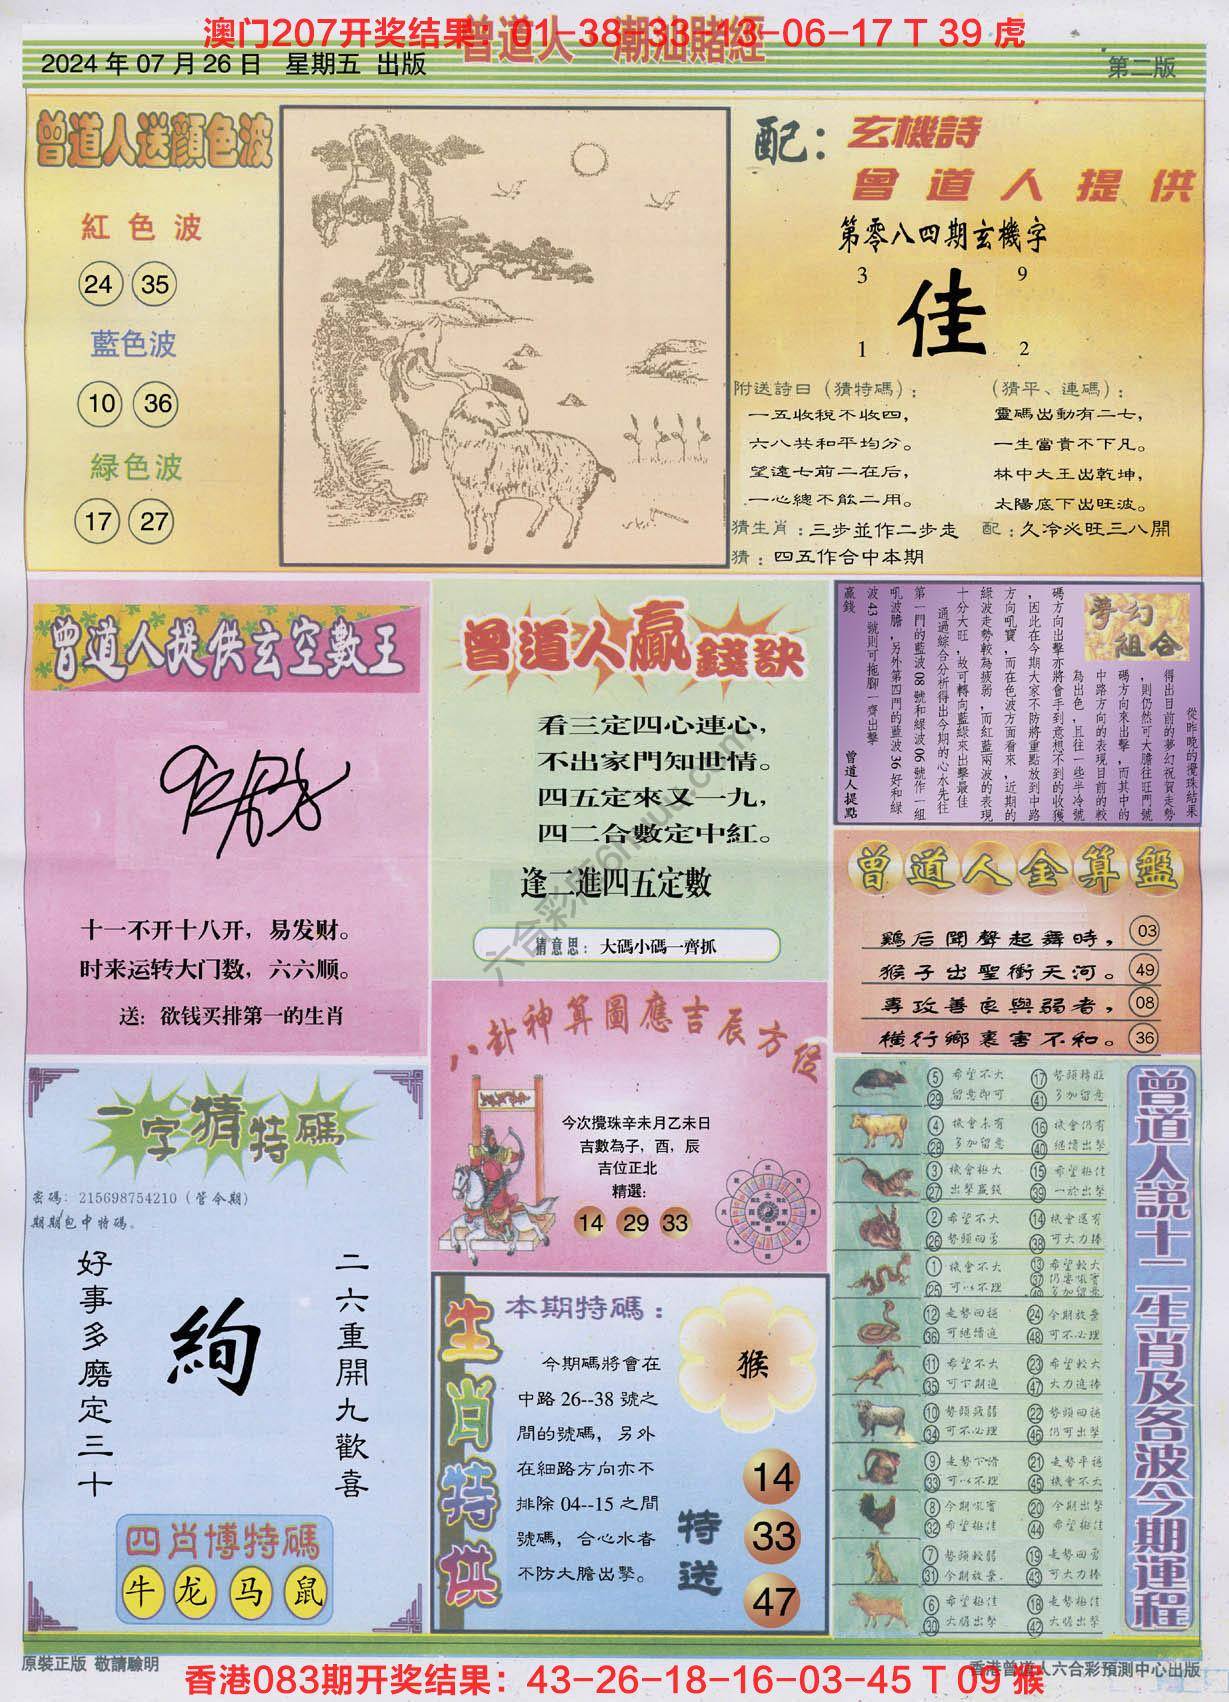 澳门207开奖结果：01-38-33-13-06-17 T 39 虎
曾道人 潮汕賭經
2024 年 07 月 26 日 星期五 出版
第二版
曾道人送顏色波
紅色波
24 35
藍色波
10 36
緑色波
17 27
配：玄機詩
曾道人提供
第零八四期玄機字
3 9
佳
1 2
附送詩曰（猜特碼）：
一五收稅不收四，
六八共和平均分。
望遠七前二在后，
一心總不能二用。
（猜平、連碼）：
靈碼出動有二七，
一生當貴不下凡。
林中大王出乾坤，
太陽底下出旺波。
猜生肖：三步並作二步走
配：久冷必旺三八開
猜：四五作合中本期
曾道人提供玄空數王
十一不开十八开，易发财。
时来运转大门数，六六顺。
送：欲钱买排第一的生肖
曾道人贏錢訣
看三定四心連心，
不出家門知世情。
四五定來又一九，
四二合數定中紅。
逢二進四五定數
猜意思：大碼小碼一齊抓
夢幻組合
從昨晚的攪珠結果
得出目前的夢幻祝賀走勢
，則仍然可大膽往旺門號
碼方向來出擊，而其中的
中路方向的表現目前的較
為出色，且往一些半冷號
碼方向出擊亦將會手到意想不到的收獲
，因此在今期大家不防將重點放到中路
方向吼寶，而在色波方面看來，近期的
綠波走勢較為疲弱，而紅藍兩波的表現
十分大旺，故可轉向藍綠來出擊最佳
通過綜合分析得出今期的心水先往
第一門的藍波 08 號和綠波 06 號作一組
吼波膽，另外第四門的藍波 36 好和綠
波 43 號則可拖腳一齊出擊
贏錢
曾道人提點
曾道人金算盤
鷄后聞聲起舞時， 03
猴子出聖衝天河。 49
專攻善良與弱者， 08
橫行鄉裏害不和。 36
八卦神算圖應吉辰方位
今次攪珠辛未月乙未日
吉數為子，酉，辰
吉位正北
精選：
14 29 33
一字猜特碼
密碼：215698754210（管今期）
期期包中特碼。
好事多磨定三十
絢
二六重開九歡喜
四肖博特碼
牛 龙 马 鼠
生肖特供
本期特碼：
今期碼將會在
中路 26--38 號之
間的號碼，另外
在細路方向亦不
排除 04--15 之間
號碼，合心水者
不防大膽出擊。
猴
特送
14
33
47
曾道人説十二生肖及各波今期運程
⑤ 希望不大 ⑰ 勢頭轉旺
㉙ 留意即可 ㊶ 多加留意
④ 機會未有 ⑯ 機會仍有
㉘ 多加留意 ㊵ 繼續出擊
③ 機會極大 ⑮ 希望極佳
㉗ 出擊贏錢 ㊴ 一於出擊
② 希望不大 ⑭ 機會還有
㉖ 勢頭回勇 ㊳ 可大力捧
① 機會不大 ⑬ 希望較大
㉕ 可以不理
⑫ 走勢回穩 ㉔ 今期放棄
㊱ 可繼續追 ㊽ 可不必理
⑪ 希望不大 ㉓ 希望較大
㉟ 可下期追 ㊼ 大力追捧
⑩ 勢頭疲弱 ㉒ 勢頭回穩
㉞ 可不必理 ㊻ 仍可出擊
⑨ 走勢下滑 ㉑ 走勢平穩
㉝ 可以不理 ㊺ 機會不大
⑧ 今期吼寶 ⑳ 今期出擊
㉜ 希望極佳 ㊹ 希望極佳
⑦ 勢頭較弱 ⑲ 走勢回勇
㉛ 今期放棄. ㊸ 可大力捧
⑥ 希望極佳 ⑱ 走勢極佳
㉚ 大膽出擊 ㊷ 大膽出擊
原裝正版 敬請驗明
香港曾道人六合彩預測中心出版
香港083期开奖结果：43-26-18-16-03-45 T 09 猴